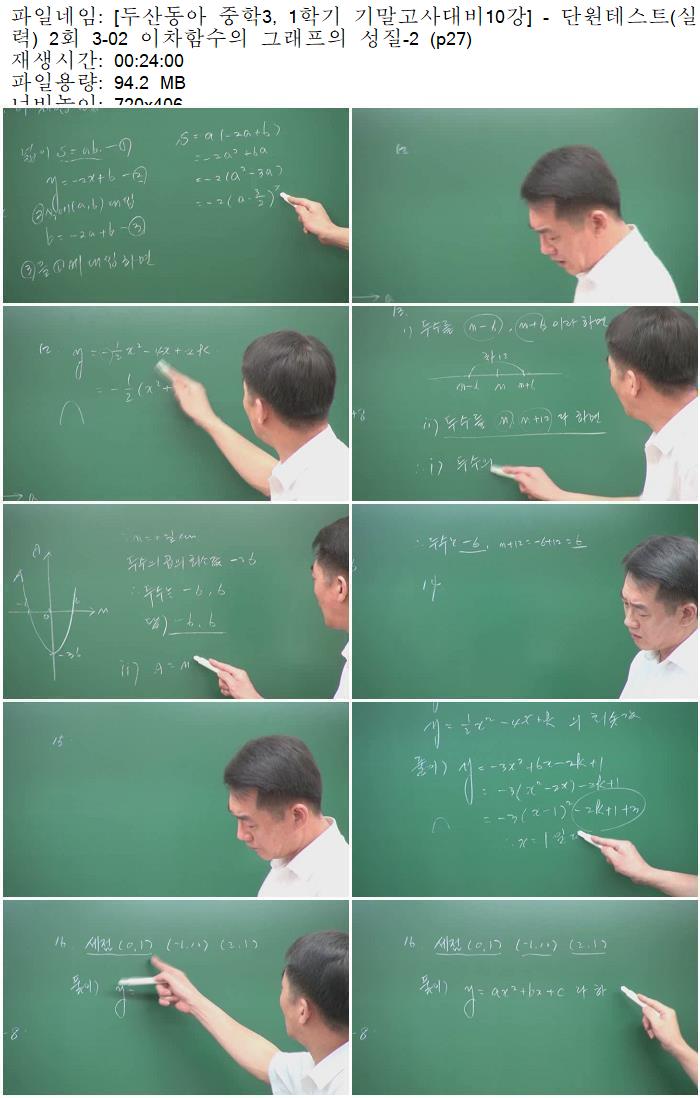 파일네임: [두산동아 중학3, 1학기 기말고사대비10강] - 단원테스트(실
력) 2회 3-02 이차함수의 그래프의 성질-2 (p27)
재생시간: 00:24:00
파일용량: 94.2 MB
너비높이: 720x406
넓이 S=ab. -①
y=-2x+6 -②
②식에(a,b) 대입
b=-2a+6 -③
③을 ①에 대입하면
S=a(-2a+6)
=-2a²+6a
=-2(a²-3a)
=-2(a-3/2)²
12
12 y=-1/2x²-4x+2k
=-1/2(x²+
13.
i) 두수를 m-6, m+6 이라 하면
차12
m-6 m m+6
ii) 두수를 m, m+12 라 하면
∴ i) 두수의
두수의 곱의 최소값 -36
∴ 두수는 -6, 6
답) -6, 6
ii) A=m
A
m
0
-36
∴ 두수는 -6, m+12=-6+12=6
14
15
y=1/2x²-4x+k 의 최솟값
풀이) y=-3x²+6x-2k+1
=-3(x²-2x)-2k+1
=-3(x-1)²-2k+1+3
∴ x=1일 때
16. 세점 (0,1) (-1,10) (2,1)
풀이) y=
-8
16. 세점 (0,1) (-1,10) (2,1)
풀이) y=ax²+bx+c 라 하
-8